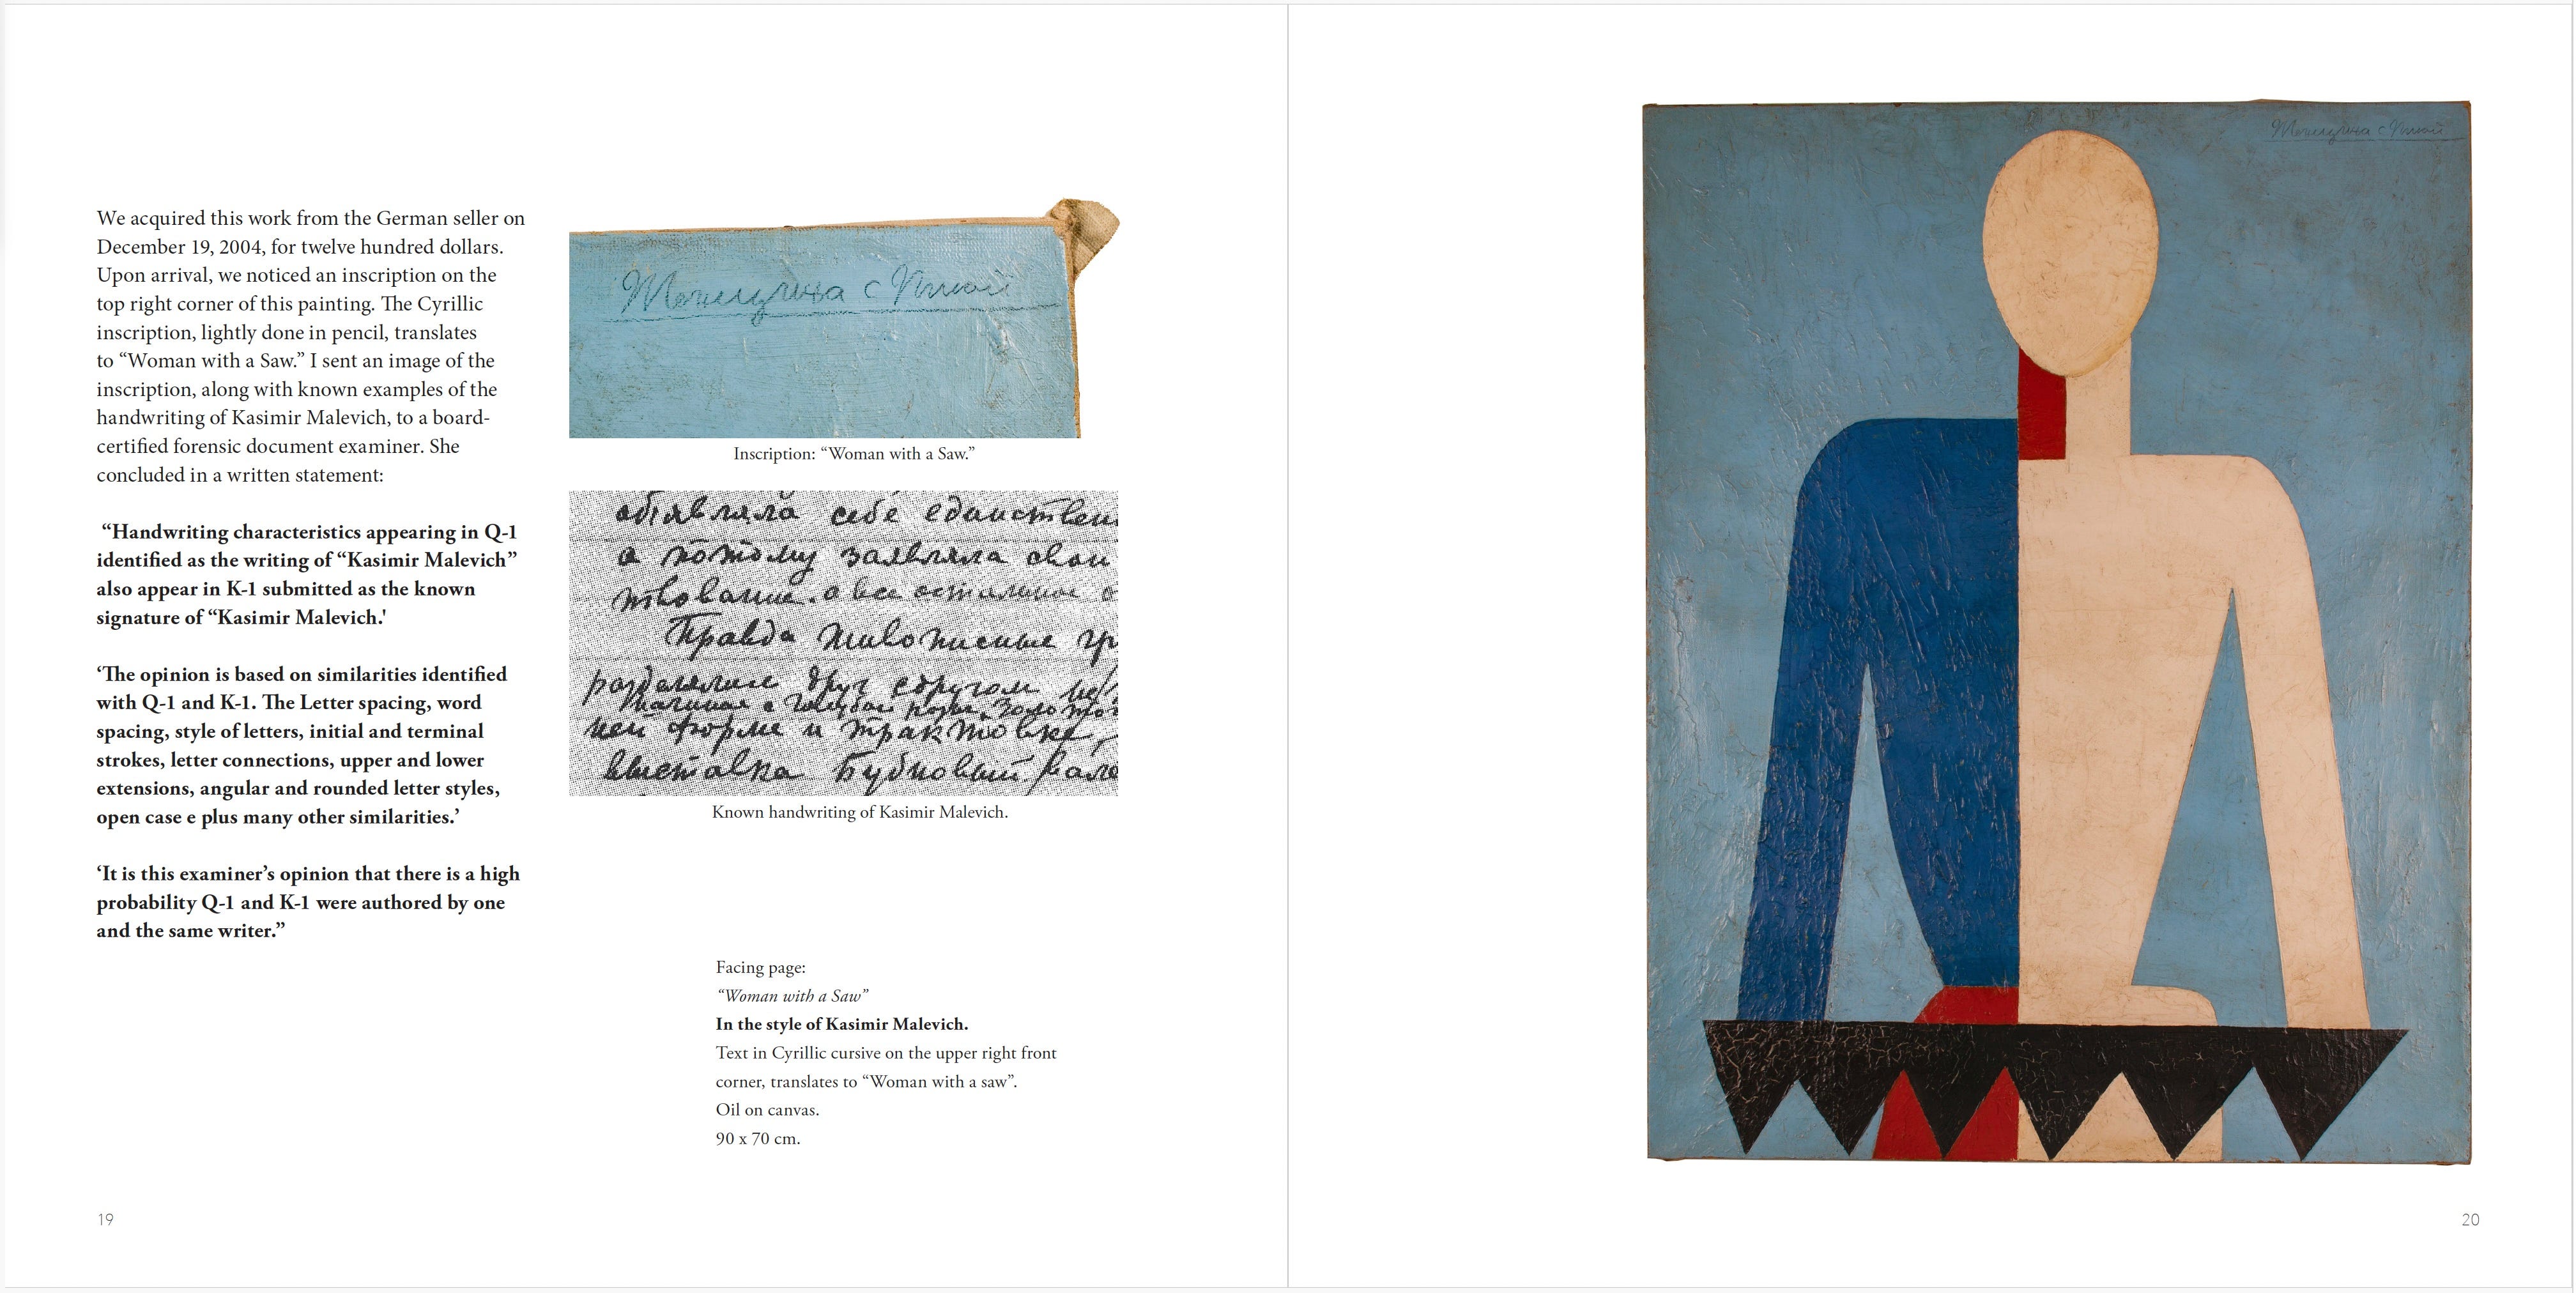 We acquired this work from the German seller on
December 19, 2004, for twelve hundred dollars.
Upon arrival, we noticed an inscription on the
top right corner of this painting. The Cyrillic
inscription, lightly done in pencil, translates
to “Woman with a Saw.” I sent an image of the
inscription, along with known examples of the
handwriting of Kasimir Malevich, to a board-
certified forensic document examiner. She
concluded in a written statement:
“Handwriting characteristics appearing in Q-1
identified as the writing of “Kasimir Malevich”
also appear in K-1 submitted as the known
signature of “Kasimir Malevich.'
‘The opinion is based on similarities identified
with Q-1 and K-1. The Letter spacing, word
spacing, style of letters, initial and terminal
strokes, letter connections, upper and lower
extensions, angular and rounded letter styles,
open case e plus many other similarities.’
‘It is this examiner’s opinion that there is a high
probability Q-1 and K-1 were authored by one
and the same writer.”
19
Женщина с Пилой
Inscription: “Woman with a Saw.”
себе единствен
а потому заявляла свои
а все остальное
Правда живописные
друг
форме и трактовке
выставка Бубновый вале
Known handwriting of Kasimir Malevich.
Facing page:
“Woman with a Saw”
In the style of Kasimir Malevich.
Text in Cyrillic cursive on the upper right front
corner, translates to “Woman with a saw”.
Oil on canvas.
90 x 70 cm.
Женщина с Пилой
20